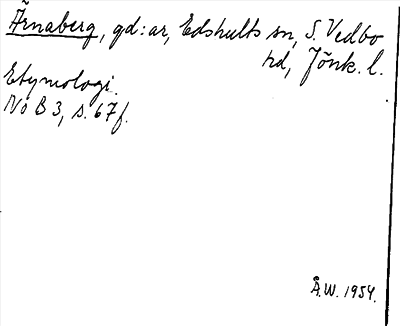 Ärnaberg, gd:ar, Edshults sn, S. Vedbo
hd, Jönk. l.
Etymologi.
NoB 3, s. 67f.
Å.W. 1954.